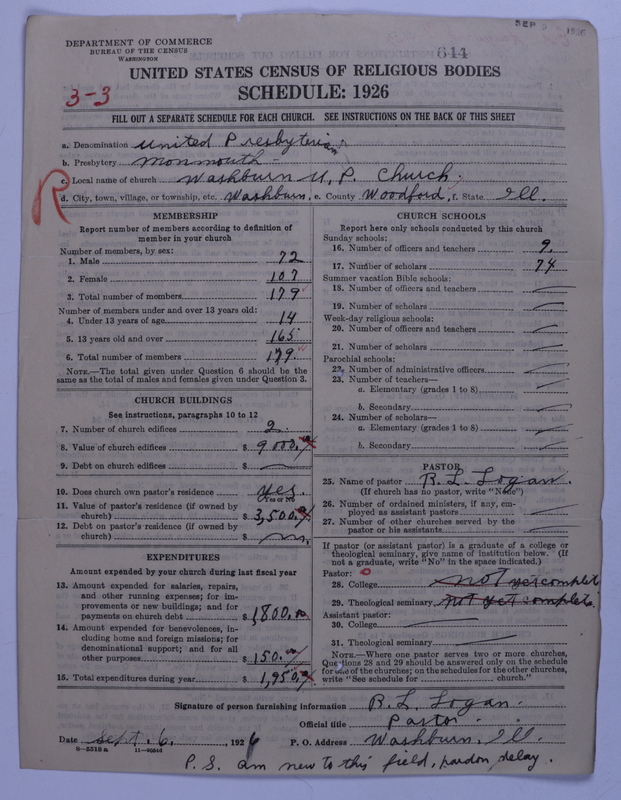 SEP 1926
DEPARTMENT OF COMMERCE
BUREAU OF THE CENSUS
WASHINGTON
644
UNITED STATES CENSUS OF RELIGIOUS BODIES
3-3
SCHEDULE: 1926
FILL OUT A SEPARATE SCHEDULE FOR EACH CHURCH. SEE INSTRUCTIONS ON THE BACK OF THIS SHEET
a. Denomination United Presbyterian
b. Presbytery Monmouth
R
c. Local name of church Washburn U. P. Church
d. City, town, village, or township, etc. Washburn, e. County Woodford, f. State Ill.
MEMBERSHIP
Report number of members according to definition of
member in your church
Number of members, by sex:
1. Male 72
2. Female 107
3. Total number of members 179
Number of members under and over 13 years old:
4. Under 13 years of age 14
5. 13 years old and over 165
6. Total number of members 179.
NOTE.—The total given under Question 6 should be the
same as the total of males and females given under Question 3.
CHURCH BUILDINGS
See instructions, paragraphs 10 to 12
7. Number of church edifices 2.
8. Value of church edifices $ 9000.
9. Debt on church edifices $
10. Does church own pastor's residence yes.
(Yes or No)
11. Value of pastor's residence (if owned by
church) $ 3,500.
12. Debt on pastor's residence (if owned by
church) $
EXPENDITURES
Amount expended by your church during last fiscal year
13. Amount expended for salaries, repairs,
and other running expenses; for im-
provements or new buildings; and for
payments on church debt $ 1800.
14. Amount expended for benevolences, in-
cluding home and foreign missions; for
denominational support; and for all
other purposes $ 150.
15. Total expenditures during year $ 1,950.
CHURCH SCHOOLS
Report here only schools conducted by this church
Sunday schools:
16. Number of officers and teachers 9.
17. Number of scholars 74
Summer vacation Bible schools:
18. Number of officers and teachers
19. Number of scholars
Week-day religious schools:
20. Number of officers and teachers
21. Number of scholars
Parochial schools:
22. Number of administrative officers
23. Number of teachers—
a. Elementary (grades 1 to 8)
b. Secondary
24. Number of scholars—
a. Elementary (grades 1 to 8)
b. Secondary
PASTOR
25. Name of pastor R. L. Logan.
(If church has no pastor, write "None")
26. Number of ordained ministers, if any, em-
ployed as assistant pastors
27. Number of other churches served by the
pastor or his assistants
If pastor (or assistant pastor) is a graduate of a college or
theological seminary, give name of institution below. (If
not a graduate, write "No" in the space indicated.)
Pastor: O
28. College not yet complete
29. Theological seminary not yet complete.
Assistant pastor:
30. College
31. Theological seminary
NOTE.—Where one pastor serves two or more churches,
Questions 28 and 29 should be answered only on the schedule
for one of the churches; on the schedules for the other churches,
write "See schedule for church."
Signature of person furnishing information R. L. Logan.
Official title Pastor.
Date Sept. 6, 1926 P. O. Address Washburn, Ill.
8-5518a 11-90646
P. S. am new to this field, pardon delay.